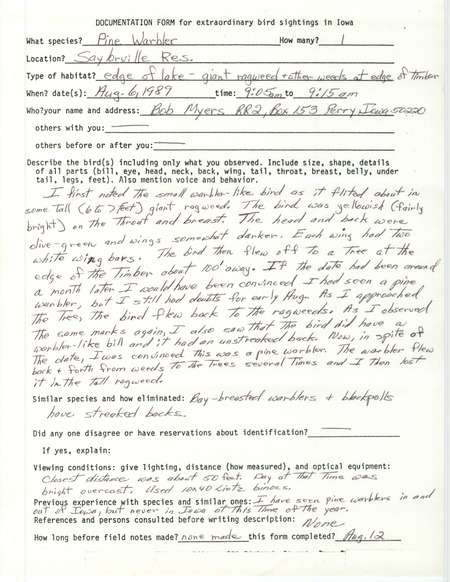 DOCUMENTATION FORM for extraordinary bird sightings in Iowa
What species? Pine Warbler How many? 1
Location? Saylorville Res.
Type of habitat? edge of lake - giant ragweed + other weeds at edge of timber
When? date(s): Aug. 6, 1989 time: 9:05am to 9:15am
Who? your name and address: Bob Myers RR2, Box 153 Perry, Iowa 50220
others with you:
others before or after you:
Describe the bird(s) including only what you observed. Include size, shape, details
of all parts (bill, eye, head, neck, back, wing, tail, throat, breast, belly, under
tail, legs, feet). Also mention voice and behavior.
I first noted the small warbler-like bird as it flitted about in
some tall (6 to 7 feet) giant ragweeds. The bird was yellowish (fairly
bright) on the throat and breast. The head and back were
olive-green and wings somewhat darker. Each wing had two
white wing bars. The bird then flew off to a tree at the
edge of the timber about 100' away. If the date had been around
a month later I would have been convinced I had seen a pine
warbler, but I still had doubts for early Aug. As I approached
the trees the bird flew back to the ragweeds. As I observed
the same marks again, I also saw that the bird did have a
warbler-like bill and it had an unstreaked back. Now, in spite of
the date, I was convinced this was a pine warbler. The warbler flew
back + forth from weeds to the trees several times and I then lost
it in the tall ragweeds.
Similar species and how eliminated: Bay-breasted warblers + blackpolls
have streaked backs.
Did any one disagree or have reservations about identification?
If yes, explain:
Viewing conditions: give lighting, distance (how measured), and optical equipment:
Closest distance was about 50 feet. Day at that time was
bright overcast. Used 10x40 Zeitz binocs.
Previous experience with species and similar ones: I have seen pine warblers in and
out of Iowa, but never in Iowa at this time of the year.
References and persons consulted before writing description: None
How long before field notes made? none made this form completed? Aug. 12